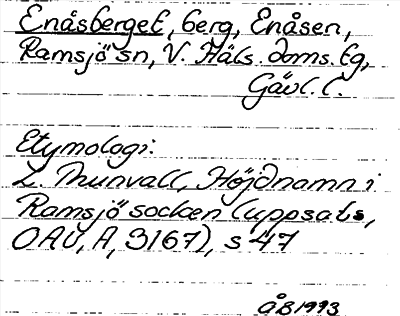 Enåsberget, berg, Enåsen,
Ramsjö sn, V. Häls. doms. tg,
Gävl. l.
Etymologi:
L. Thunvall, Höjdnamn i
Ramsjö socken (uppsats,
OAU, A, 3167), s 47
ÅB 1993